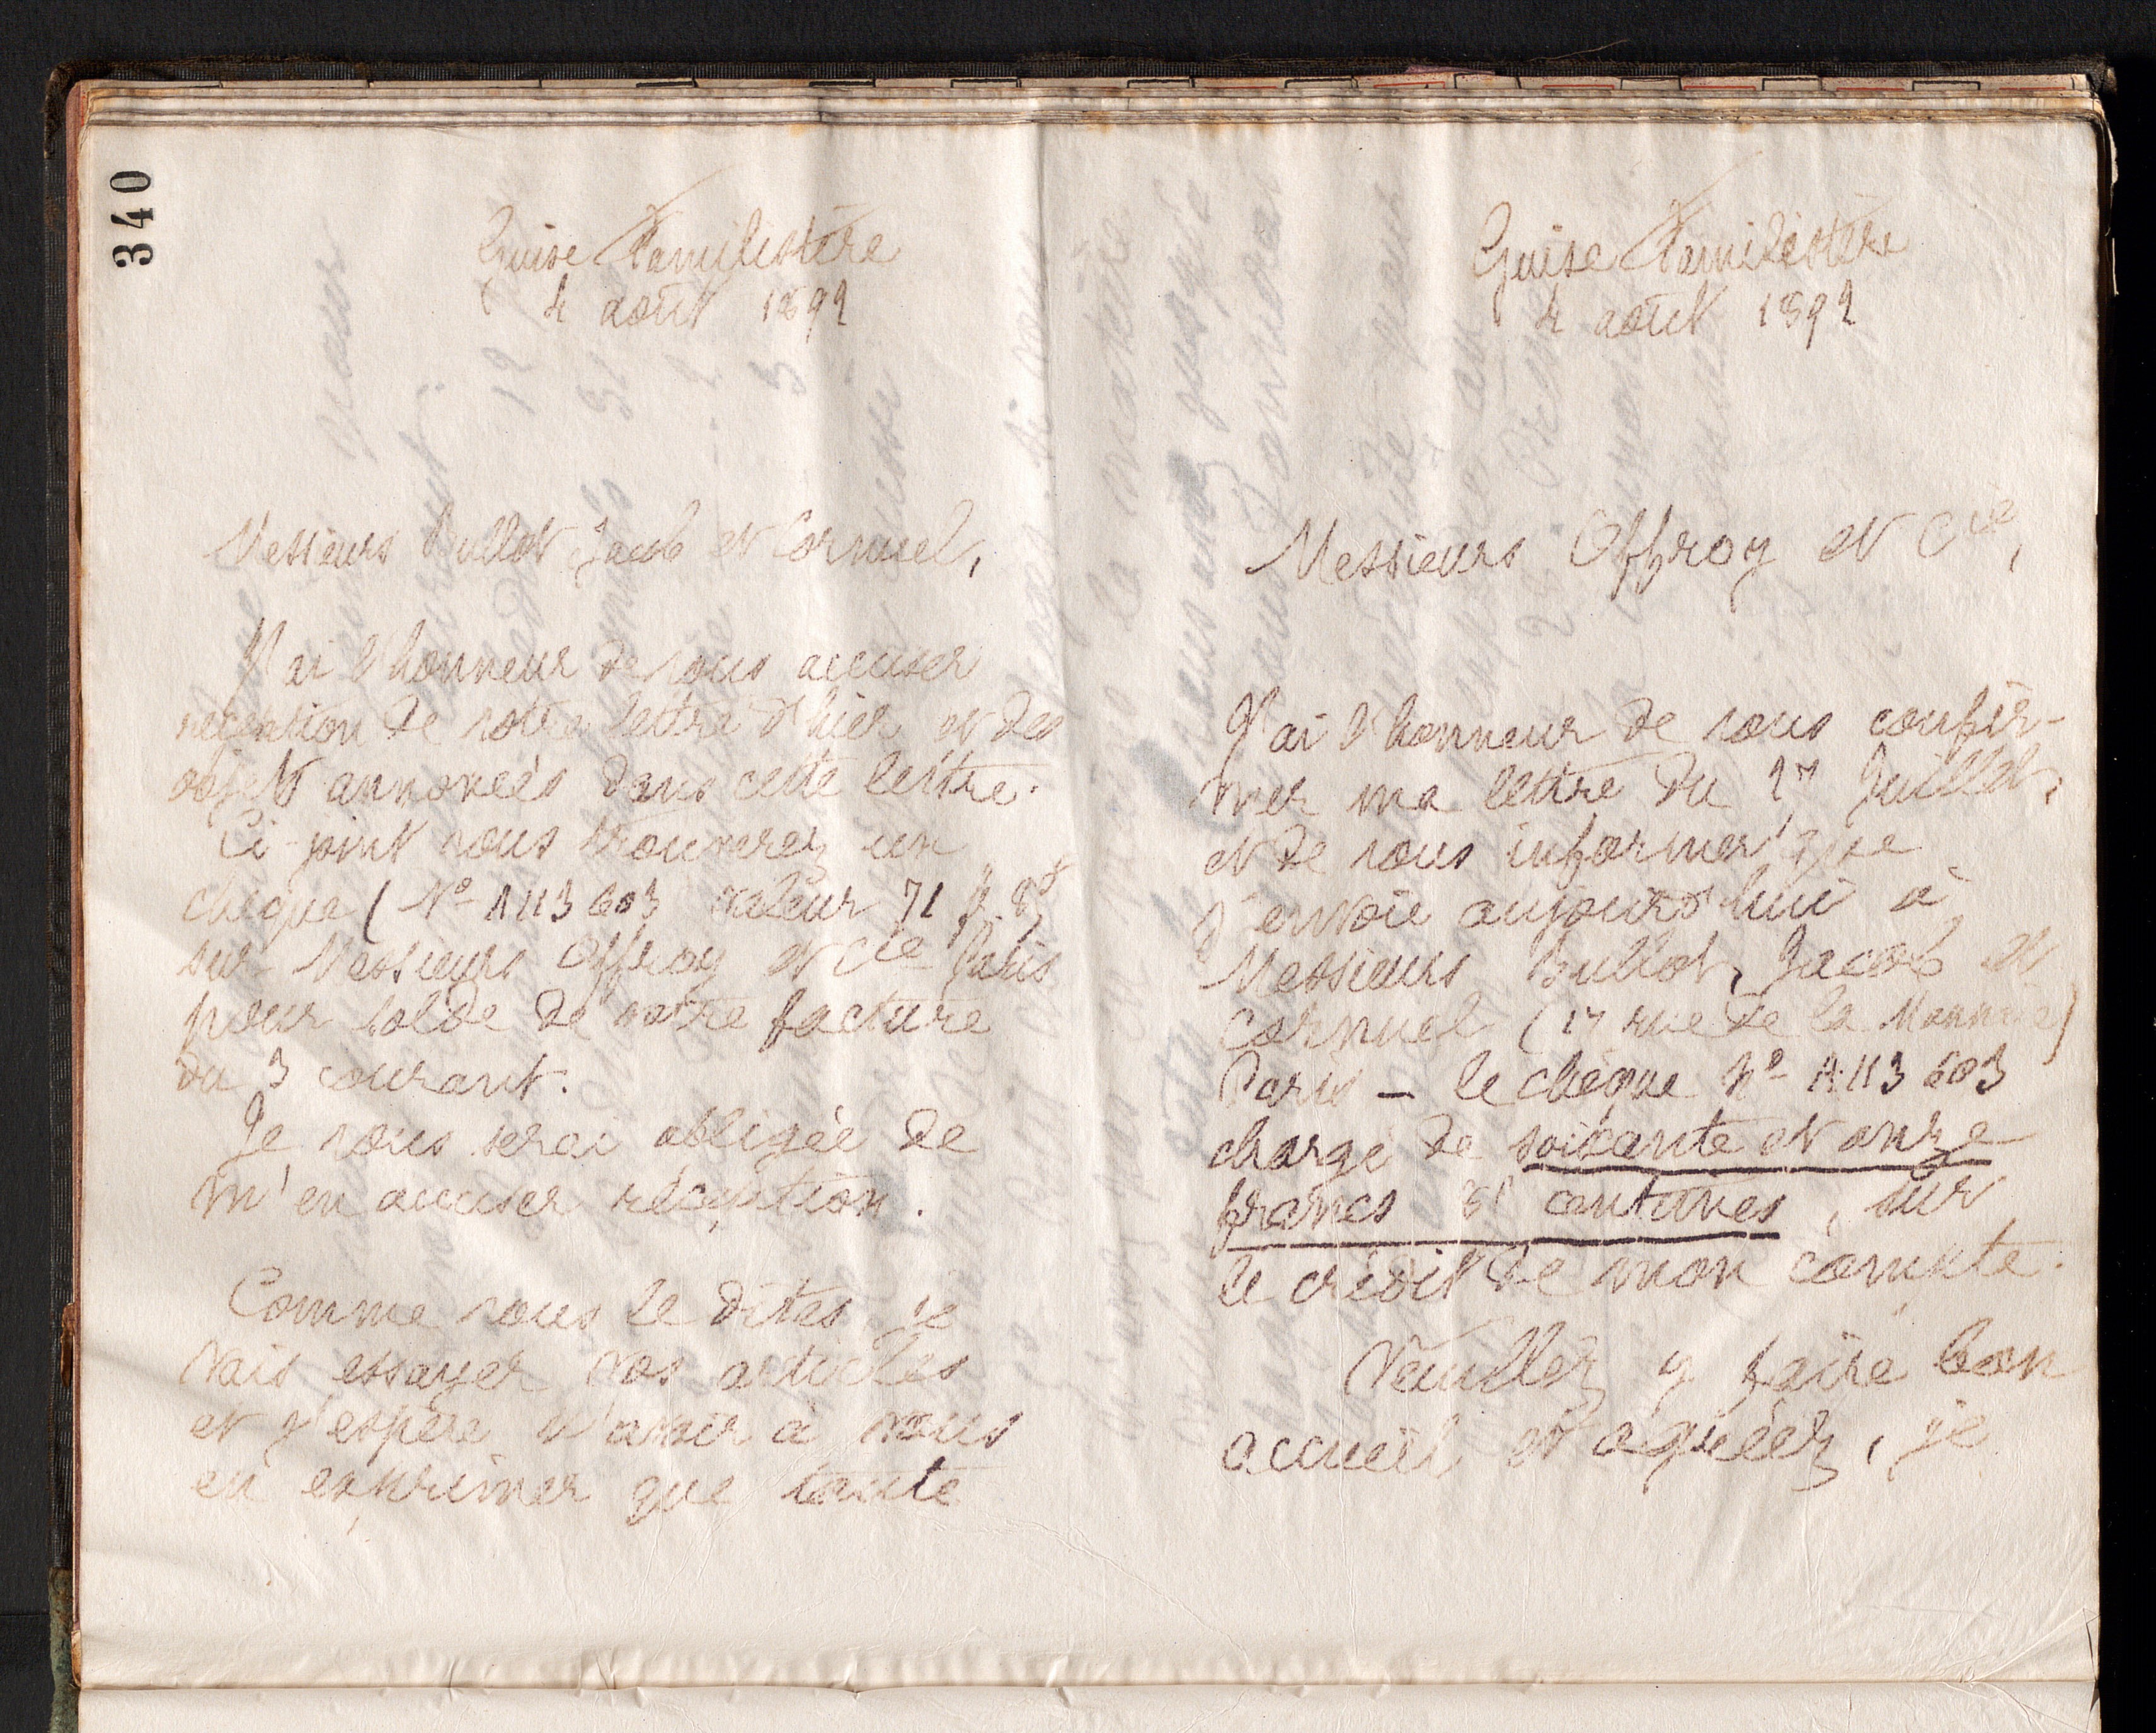 340
Guise Familistère
4 août 1892
Messieurs Bullot Jacob et Cornuel,
J'ai l'honneur de vous accuser
réception de votre lettre d'hier et des
objets annoncés dans cette lettre.
Ci-joint vous trouverez un
chèque (No A 113 603 valeur 71 f.
sur Messieurs Offroy et Cie Paris
pour solde de votre facture
du 3 courant.
Je vous serai obligée de
m'en accuser réception.
Comme vous le dites je
vais essayer vos articles
et j'espère n'avoir à vous
en exprimer que toute
Guise Familistère
4 août 1892
Messieurs Offroy et Cie,
J'ai l'honneur de vous confir-
mer ma lettre du Juillet,
et de vous informer que
j'envoie aujourd'hui à
Messieurs Bullot, Jacob et
Cornuel (17 rue de la Monnaie)
Paris – le chèque No A 113 603
chargé de soixante et onze
francs centimes, sur
le crédit de mon compte.
Veuillez y faire bon
accueil et agréer, je